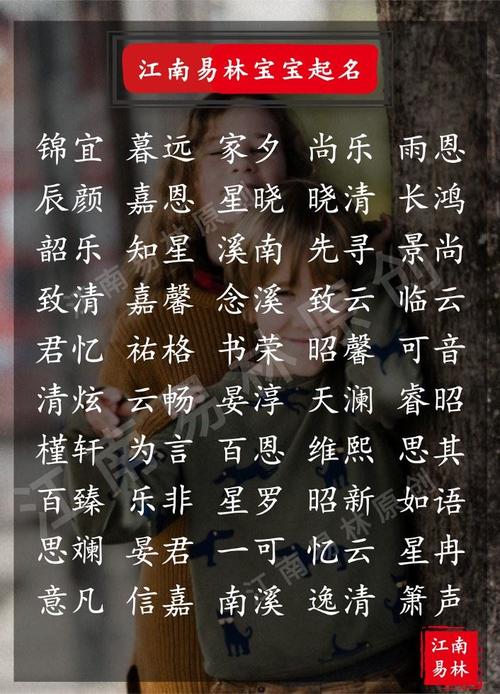 江南易林宝宝起名
锦宜 暮远 家夕 尚乐 雨恩
辰颜 嘉恩 星晓 晓清 长鸿
韶乐 知星 溪南 先寻 景尚
致清 嘉馨 念溪 致云 临云
君忆 祐格 书荣 昭馨 可音
清炫 云畅 晏淳 天澜 睿昭
槿轩 为言 百恩 维熙 思其
百臻 乐非 星罗 昭新 如语
思斓 晏君 一可 忆云 星冉
意凡 信嘉 南溪 逸清 箫声
江南易林原创
江南易林原创
江南易林原创
江南
易林